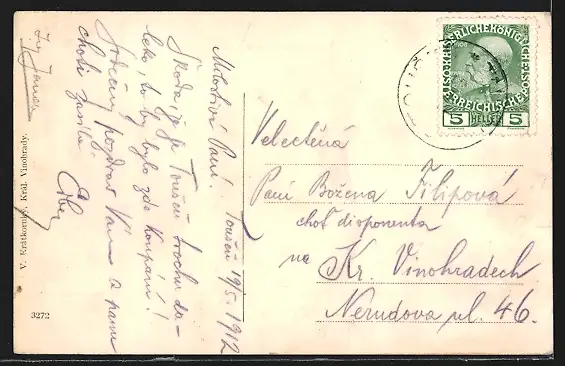 Milostivá Paní! Toušeň 19/5. 1912
Škoda, že je Toušeň trochu da-
leko, to by bylo zde koupání!
Srdečný pozdrav Vám a panu
choti zasílá
V. Krátkoruký, Král. Vinohrady.
3272
KAISERLICHE KÖNIGLICHE
ÖSTERREICHISCHE
1908
5 HELLER 5
Velectěná
Paní Božena Filipová
choť disponenta
na Kr. Vinohradech
Nerudova ul. 46.